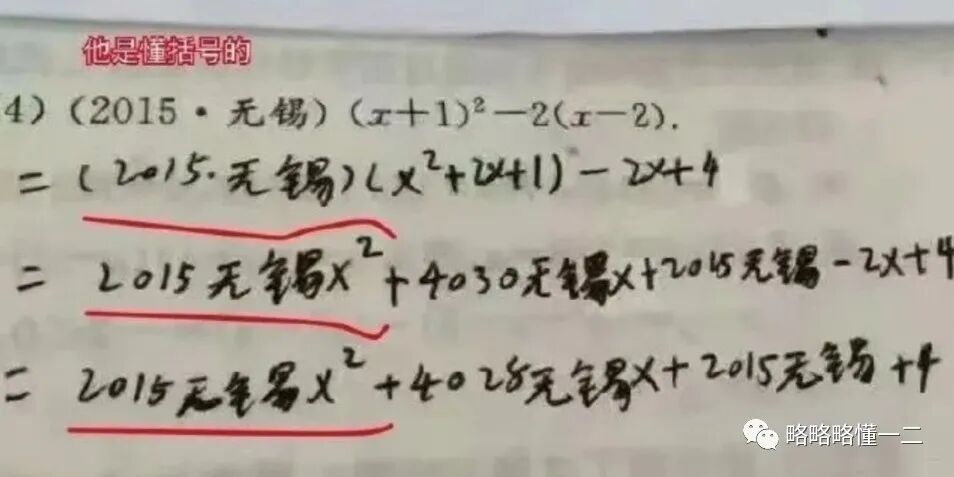 他是懂括号的
4) (2015·无锡) (x+1)²-2(x-2).
= (2015·无锡)(x²+2x+1)-2x+4
= 2015无锡x²+4030无锡x+2015无锡-2x+4
= 2015无锡x²+4028无锡x+2015无锡+4
略略略懂一二